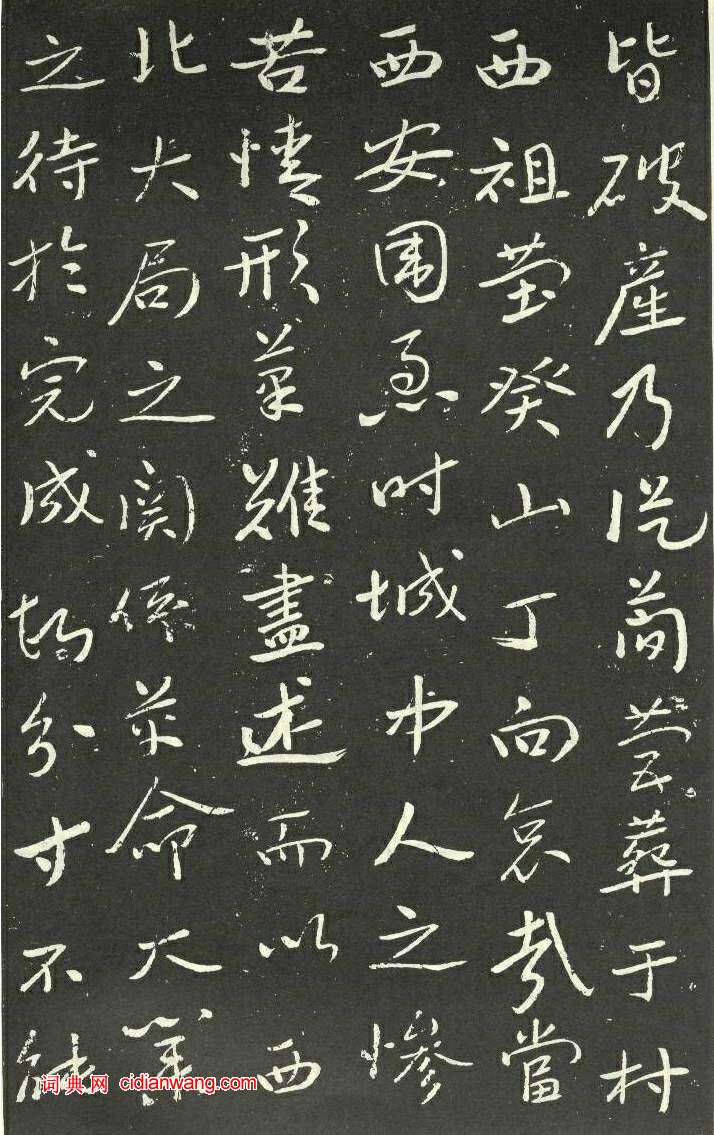 皆破產乃從簡營葬于村
西祖塋癸山丁向哀哉當
西安围急时城中人之慘
苦情形筆難盡述而以西
北大局之関係革命大業
之待於完成分寸不能
词典网 cidianwang.com